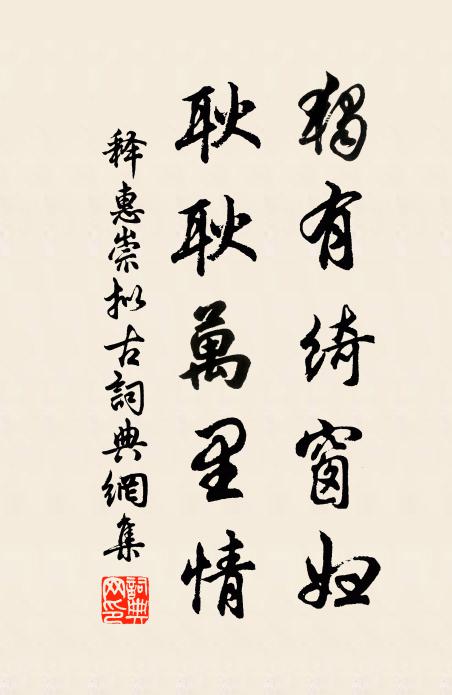 獨有綺窗婦
耿耿萬里情
釋惠崇擬古詞典網集
詞典
网印